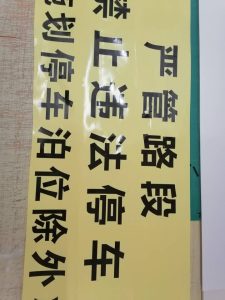 严管路段
禁止违法停车
划停车泊位除外